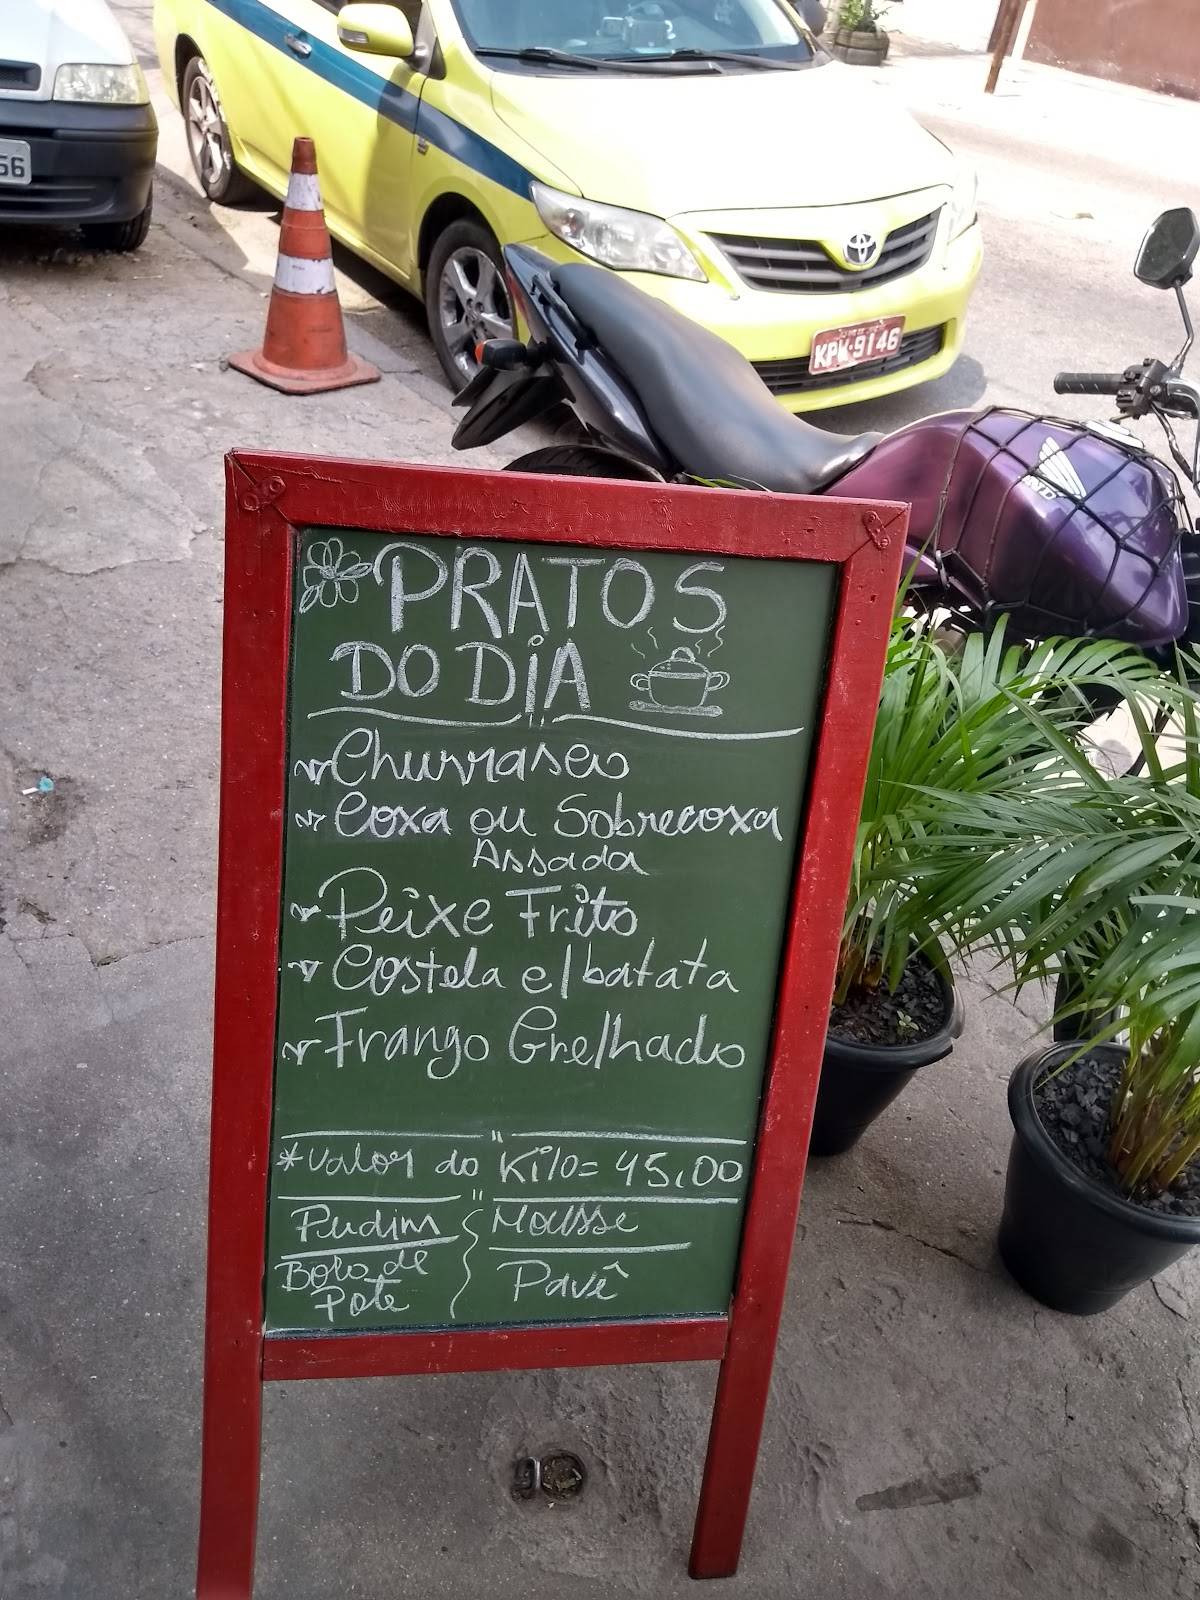 PRATOS
DO DIA
Churrasco
Coxa ou Sobrecoxa
Assada
Peixe Frito
Costela c/batata
Frango Grelhado
*Valor do Kilo= 45,00
Pudim
Mousse
Bolo de
Pote
Pavê
KPW·9146
56